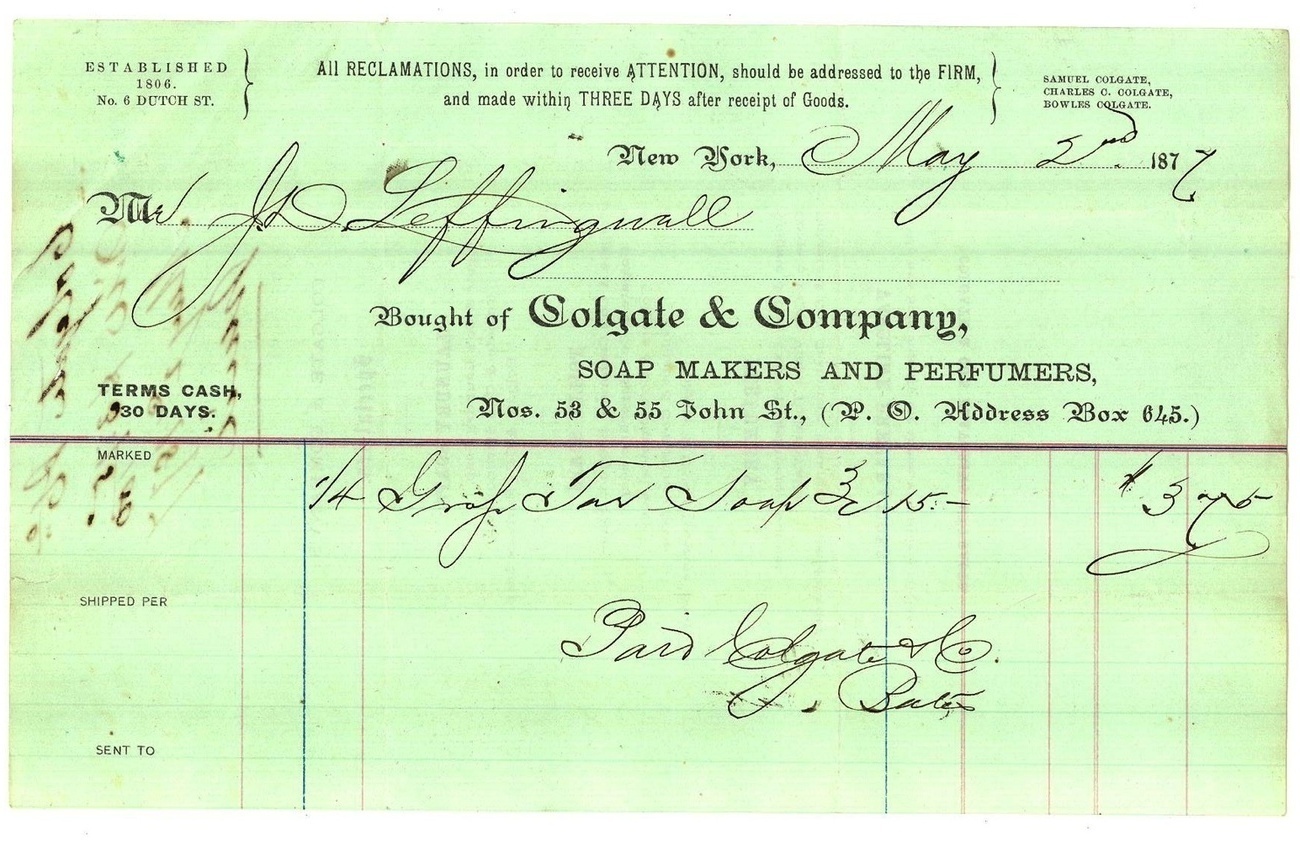 ESTABLISHED
1806.
No. 6 DUTCH ST.
All RECLAMATIONS, in order to receive ATTENTION, should be addressed to the FIRM,
and made within THREE DAYS after receipt of Goods.
SAMUEL COLGATE,
CHARLES C. COLGATE,
BOWLES COLGATE.
New York, May 2nd 1877
Mr. J. D. Leffingwell
Bought of Colgate & Company,
SOAP MAKERS AND PERFUMERS,
Nos. 53 & 55 John St., (P. O. Address Box 645.)
TERMS CASH,
30 DAYS.
MARKED
1/4 Gross Tar Soap 15.- $ 3 75
SHIPPED PER
Paid Colgate & Co.
J. Bates
SENT TO